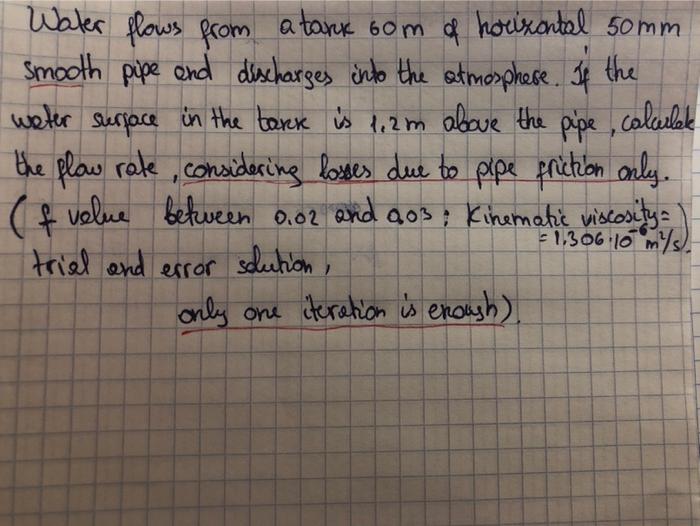 Water flows from a tank 60m of horizontal 50mm
smooth pipe and discharges into the atmosphere. If the
water surface in the tank is 1,2m above the pipe, calculate
the flow rate, considering losses due to pipe friction only.
(f value between 0.02 and 0.03; Kinematic viscosity=
=1.306·10⁻⁶ m²/s).
trial and error solution,
only one iteration is enough).